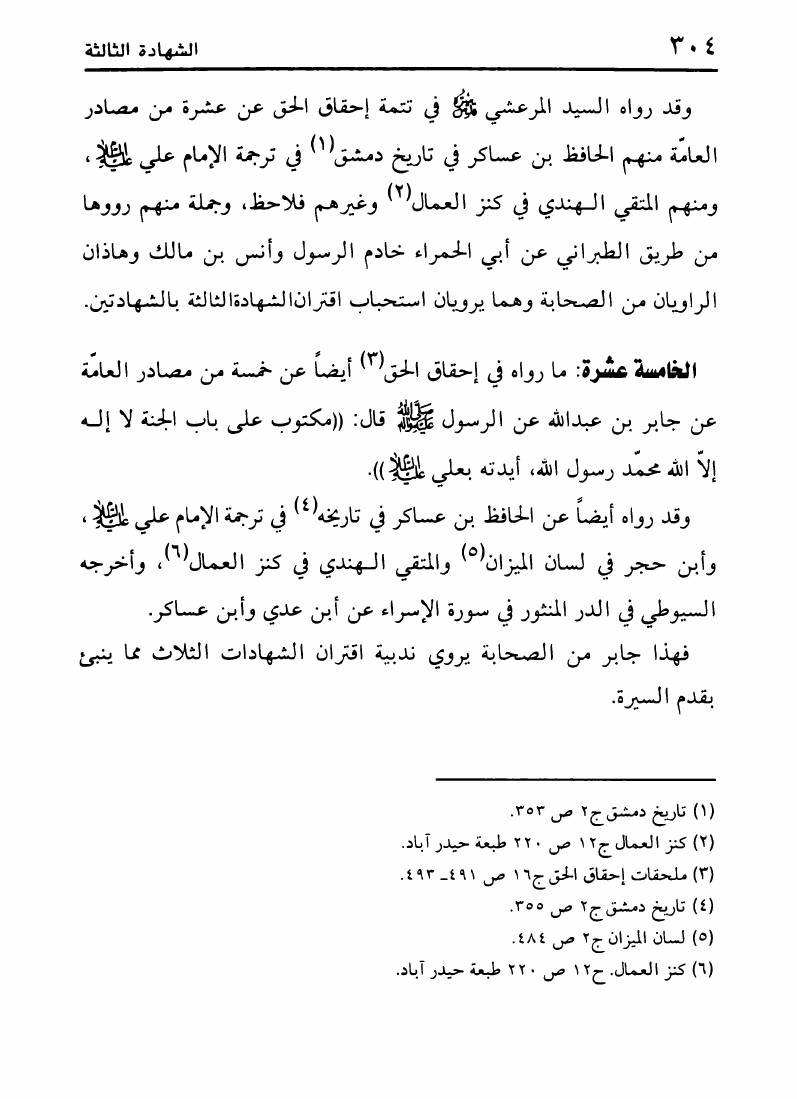 ٣٠٤ الشهادة الثالثة
وقد رواه السيد المرعشي ﷲ في تتمة إحقاق الحق عن عشرة من مصادر
العامّة منهم الحافظ بن عساكر في تاريخ دمشق(١) في ترجمة الإمام علي عليه السلام،
ومنهم المتقي الهندي في كنز العمال(٢) وغيرهم فلاحظ، وجملة منهم رووها
من طريق الطبراني عن أبي الحمراء خادم الرسول وأنس بن مالك وهاذان
الراويان من الصحابة وهما يرويان استحباب اقتران الشهادة الثالثة بالشهادتين.
الخامسة عشرة: ما رواه في إحقاق الحق(٣) أيضاً عن خمسة من مصادر العامّة
عن جابر بن عبدالله عن الرسول ﷺ قال: ((مكتوب على باب الجنة لا إله
إلاّ الله محمّد رسول الله، أيدته بعلي عليه السلام)).
وقد رواه أيضاً عن الحافظ بن عساكر في تاريخه(٤) في ترجمة الإمام علي عليه السلام،
وأبن حجر في لسان الميزان(٥) والمتقي الهندي في كنز العمال(٦)، وأخرجه
السيوطي في الدر المنثور في سورة الإسراء عن أبن عدي وأبن عساكر.
فهذا جابر من الصحابة يروي ندبية اقتران الشهادات الثلاث مما ينبئ
بقدم السيرة.
(١) تاريخ دمشق ج٢ ص ٣٥٣.
(٢) كنز العمال ج١٢ ص ٢٢٠ طبعة حيدر آباد.
(٣) ملحقات إحقاق الحق ج١٦ ص ٤٩١_ ٤٩٣.
(٤) تاريخ دمشق ج٢ ص ٣٥٥.
(٥) لسان الميزان ج٢ ص ٤٨٤.
(٦) كنز العمال. ح١٢ ص ٢٢٠ طبعة حيدر آباد.